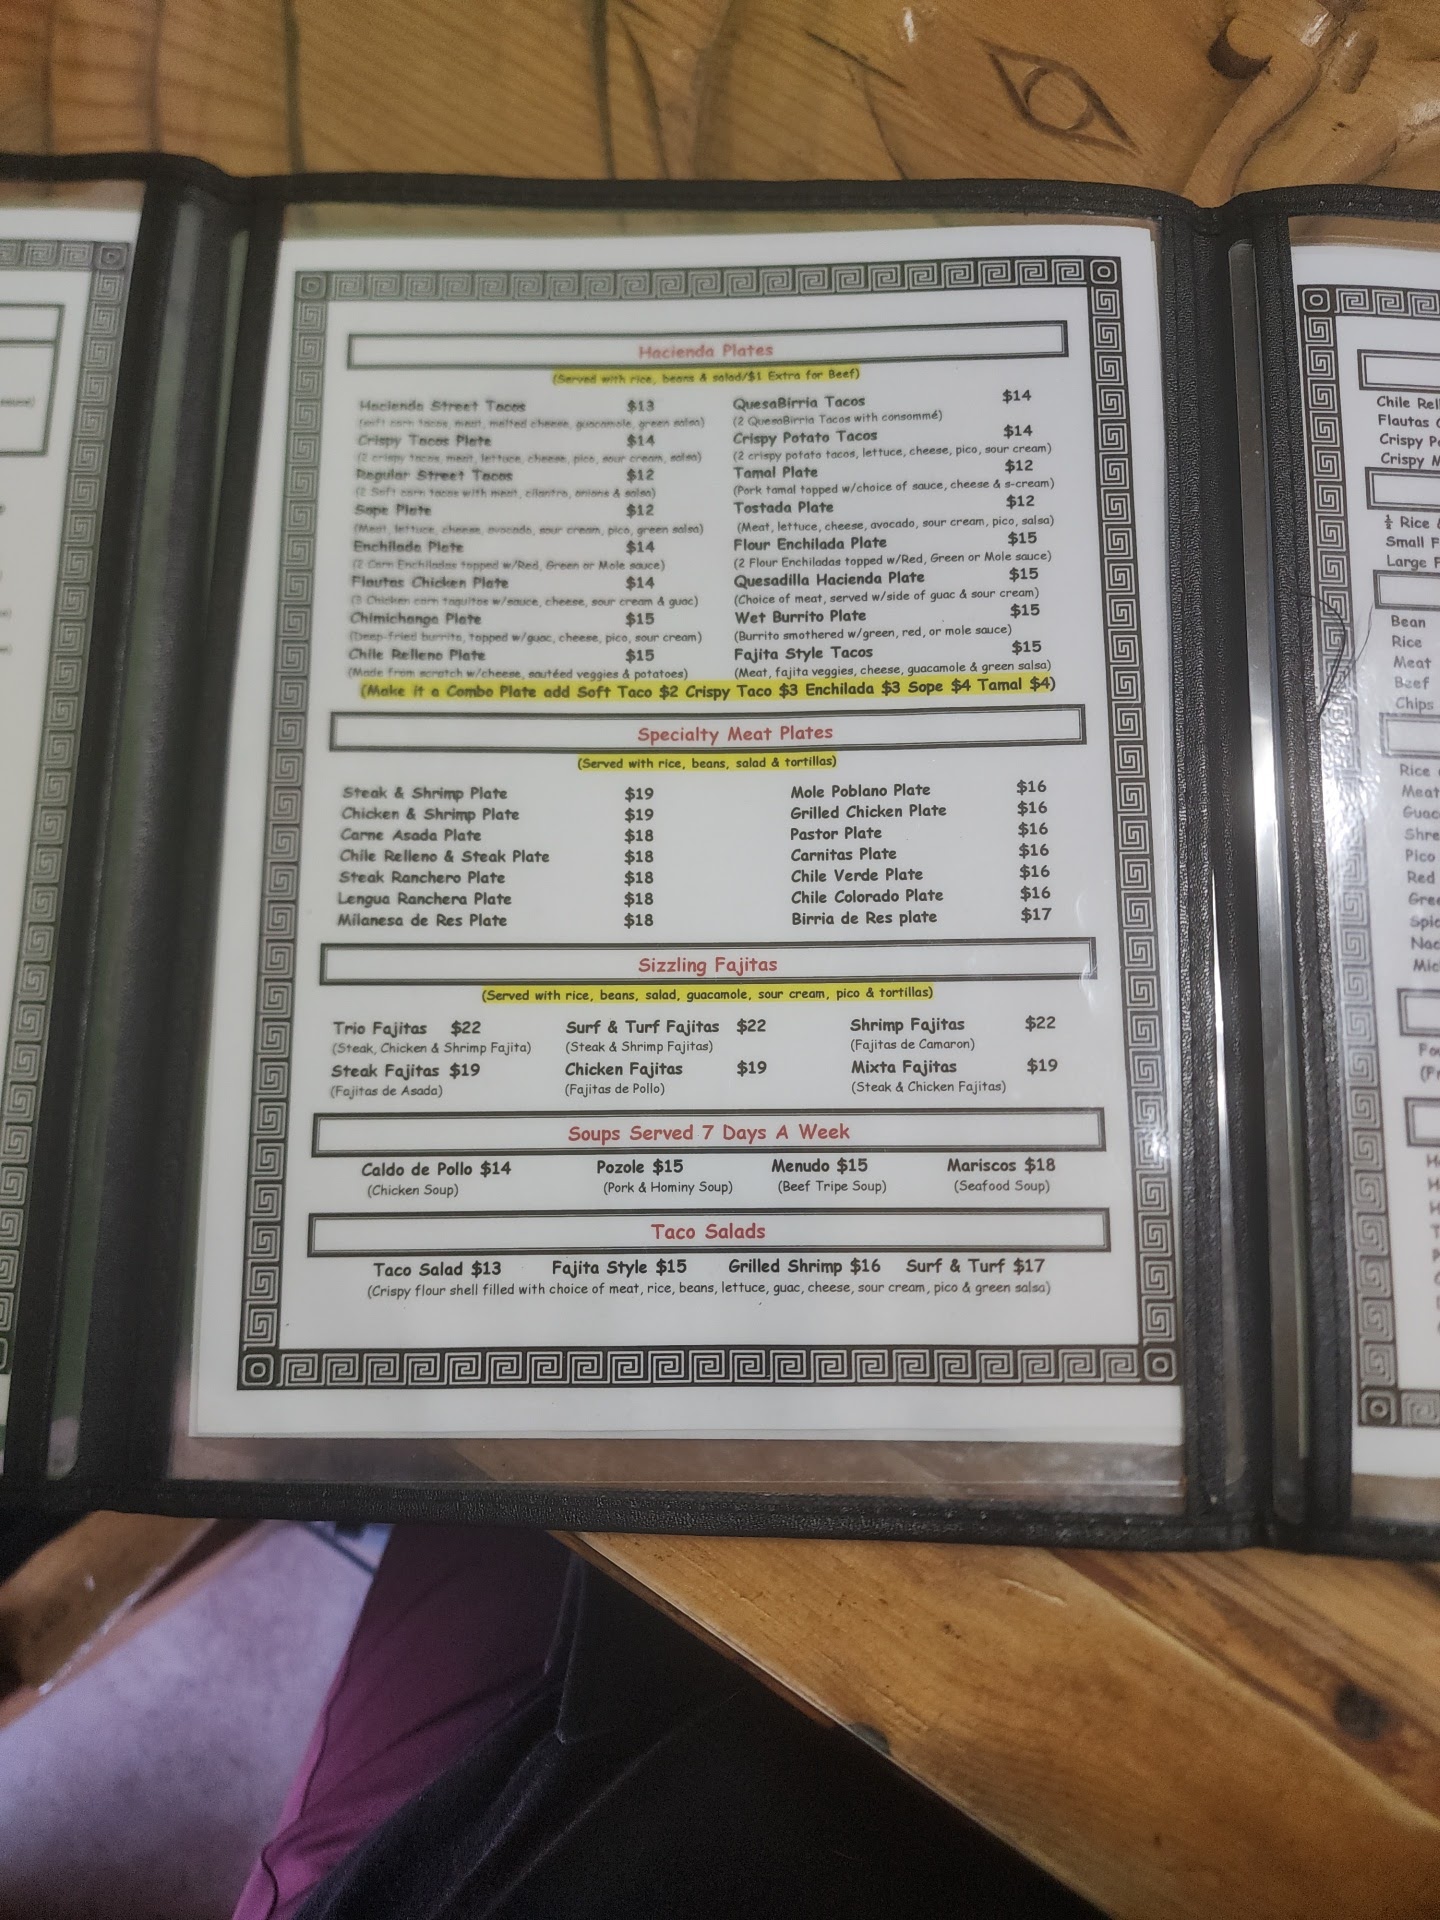 Hacienda Plates
(Served with rice, beans & salad/$1 Extra for Beef)
Hacienda Street Tacos $13
(soft corn tacos, meat, melted cheese, guacamole, green salsa)
Crispy Tacos Plate $14
(2 crispy tacos, meat, lettuce, cheese, pico, sour cream, salsa)
Regular Street Tacos $12
(2 Soft corn tacos with meat, cilantro, onions & salsa)
Sope Plate $12
(Meat, lettuce, cheese, avocado, sour cream, pico, green salsa)
Enchilada Plate $14
(2 Corn Enchiladas topped w/Red, Green or Mole sauce)
Flautas Chicken Plate $14
(3 Chicken corn taquitos w/sauce, cheese, sour cream & guac)
Chimichanga Plate $15
(Deep-fried burrito, topped w/guac, cheese, pico, sour cream)
Chile Relleno Plate $15
(Made from scratch w/cheese, sautéed veggies & potatoes)
QuesaBirria Tacos $14
(2 QuesaBirria Tacos with consommé)
Crispy Potato Tacos $14
(2 crispy potato tacos, lettuce, cheese, pico, sour cream)
Tamal Plate $12
(Pork tamal topped w/choice of sauce, cheese & s-cream)
Tostada Plate $12
(Meat, lettuce, cheese, avocado, sour cream, pico, salsa)
Flour Enchilada Plate $15
(2 Flour Enchiladas topped w/Red, Green or Mole sauce)
Quesadilla Hacienda Plate $15
(Choice of meat, served w/side of guac & sour cream)
Wet Burrito Plate $15
(Burrito smothered w/green, red, or mole sauce)
Fajita Style Tacos $15
(Meat, fajita veggies, cheese, guacamole & green salsa)
(Make it a Combo Plate add Soft Taco $2 Crispy Taco $3 Enchilada $3 Sope $4 Tamal $4)
Specialty Meat Plates
(Served with rice, beans, salad & tortillas)
Steak & Shrimp Plate $19
Chicken & Shrimp Plate $19
Carne Asada Plate $18
Chile Relleno & Steak Plate $18
Steak Ranchero Plate $18
Lengua Ranchera Plate $18
Milanesa de Res Plate $18
Mole Poblano Plate $16
Grilled Chicken Plate $16
Pastor Plate $16
Carnitas Plate $16
Chile Verde Plate $16
Chile Colorado Plate $16
Birria de Res plate $17
Sizzling Fajitas
(Served with rice, beans, salad, guacamole, sour cream, pico & tortillas)
Trio Fajitas $22 Surf & Turf Fajitas $22 Shrimp Fajitas $22
(Steak, Chicken & Shrimp Fajita) (Steak & Shrimp Fajitas) (Fajitas de Camaron)
Steak Fajitas $19 Chicken Fajitas $19 Mixta Fajitas $19
(Fajitas de Asada) (Fajitas de Pollo) (Steak & Chicken Fajitas)
Soups Served 7 Days A Week
Caldo de Pollo $14 Pozole $15 Menudo $15 Mariscos $18
(Chicken Soup) (Pork & Hominy Soup) (Beef Tripe Soup) (Seafood Soup)
Taco Salads
Taco Salad $13 Fajita Style $15 Grilled Shrimp $16 Surf & Turf $17
(Crispy flour shell filled with choice of meat, rice, beans, lettuce, guac, cheese, sour cream, pico & green salsa)
Chile Rel
Flautas
Crispy
Crispy
½ Rice
Small F
Large F
Bean
Rice
Meat
Beef
Chips
Rice
Meat
Guac
Shre
Pico
Red
Gree
Spic
Nac
Mic